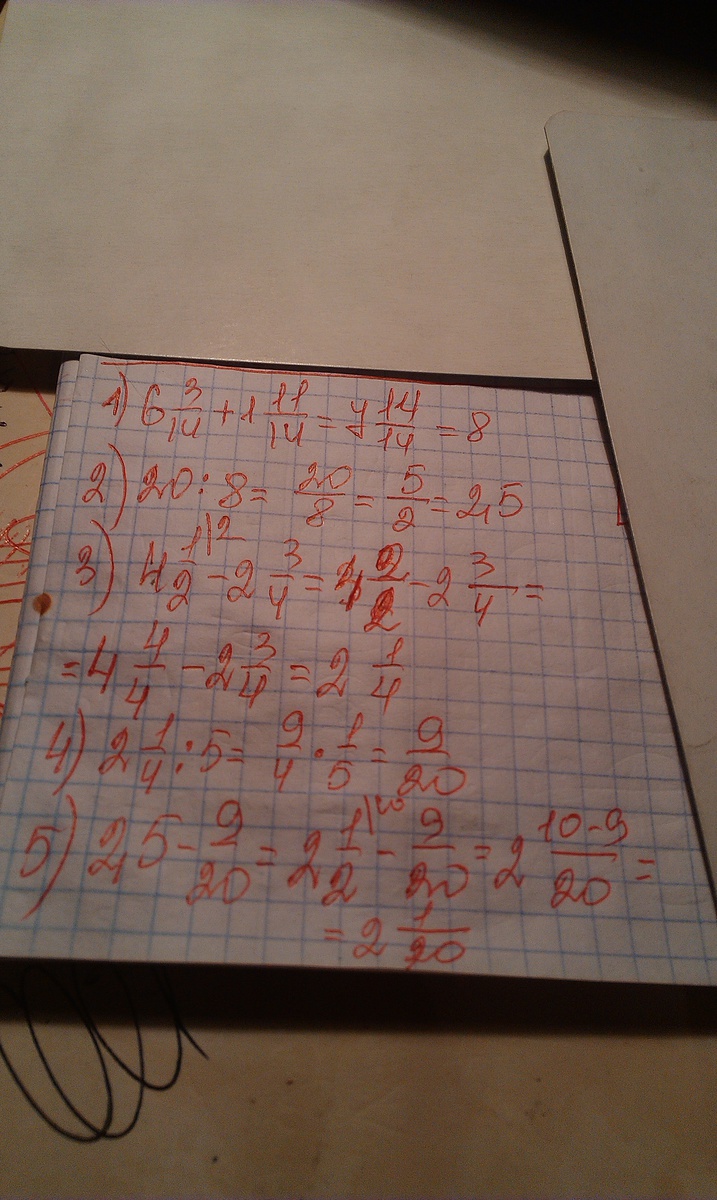 1) 6 3/14 + 1 11/14 = 7 14/14 = 8
2) 20 : 8 = 20/8 = 5/2 = 2,5
3) 4 1/2 |2 - 2 3/4 = 4 2/2 - 2 3/4 =
= 4 4/4 - 2 3/4 = 2 1/4
4) 2 1/4 : 5 = 9/4 · 1/5 = 9/20
5) 2,5 - 9/20 = 2 1/2 |10 - 9/20 = 2 10-9/20 =
= 2 1/20